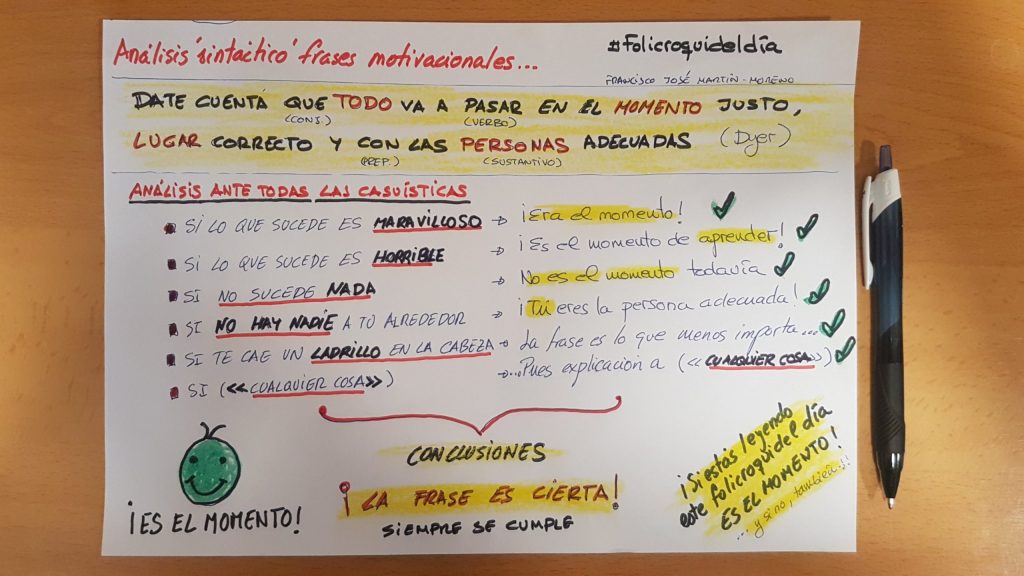 Análisis 'sintáctico' frases motivacionales...
#Folicroquideldía
FRANCISCO JOSÉ MARTÍN-MORENO
DATE CUENTA QUE TODO VA A PASAR EN EL MOMENTO JUSTO,
(CONJ.) (VERBO)
LUGAR CORRECTO Y CON LAS PERSONAS ADECUADAS (Dyer)
(PREP.) (SUSTANTIVO)
ANÁLISIS ANTE TODAS LAS CASUÍSTICAS
SI LO QUE SUCEDE ES MARAVILLOSO → ¡Era el momento! ✓
SI LO QUE SUCEDE ES HORRIBLE → ¡Es el momento de aprender! ✓
SI NO SUCEDE NADA → No es el momento todavía ✓
SI NO HAY NADIE A TU ALREDEDOR → ¡Tú eres la persona adecuada! ✓
SI TE CAE UN LADRILLO EN LA CABEZA → La frase es lo que menos importa... ✓
SI (<<CUALQUIER COSA>>) → ...Pues explicación a (<<CUALQUIER COSA>>) ✓
CONCLUSIONES
¡LA FRASE ES CIERTA!
SIEMPRE SE CUMPLE
¡ES EL MOMENTO!
¡Si estás leyendo
este folicroquidel día
ES EL MOMENTO!
... y si no, también...!